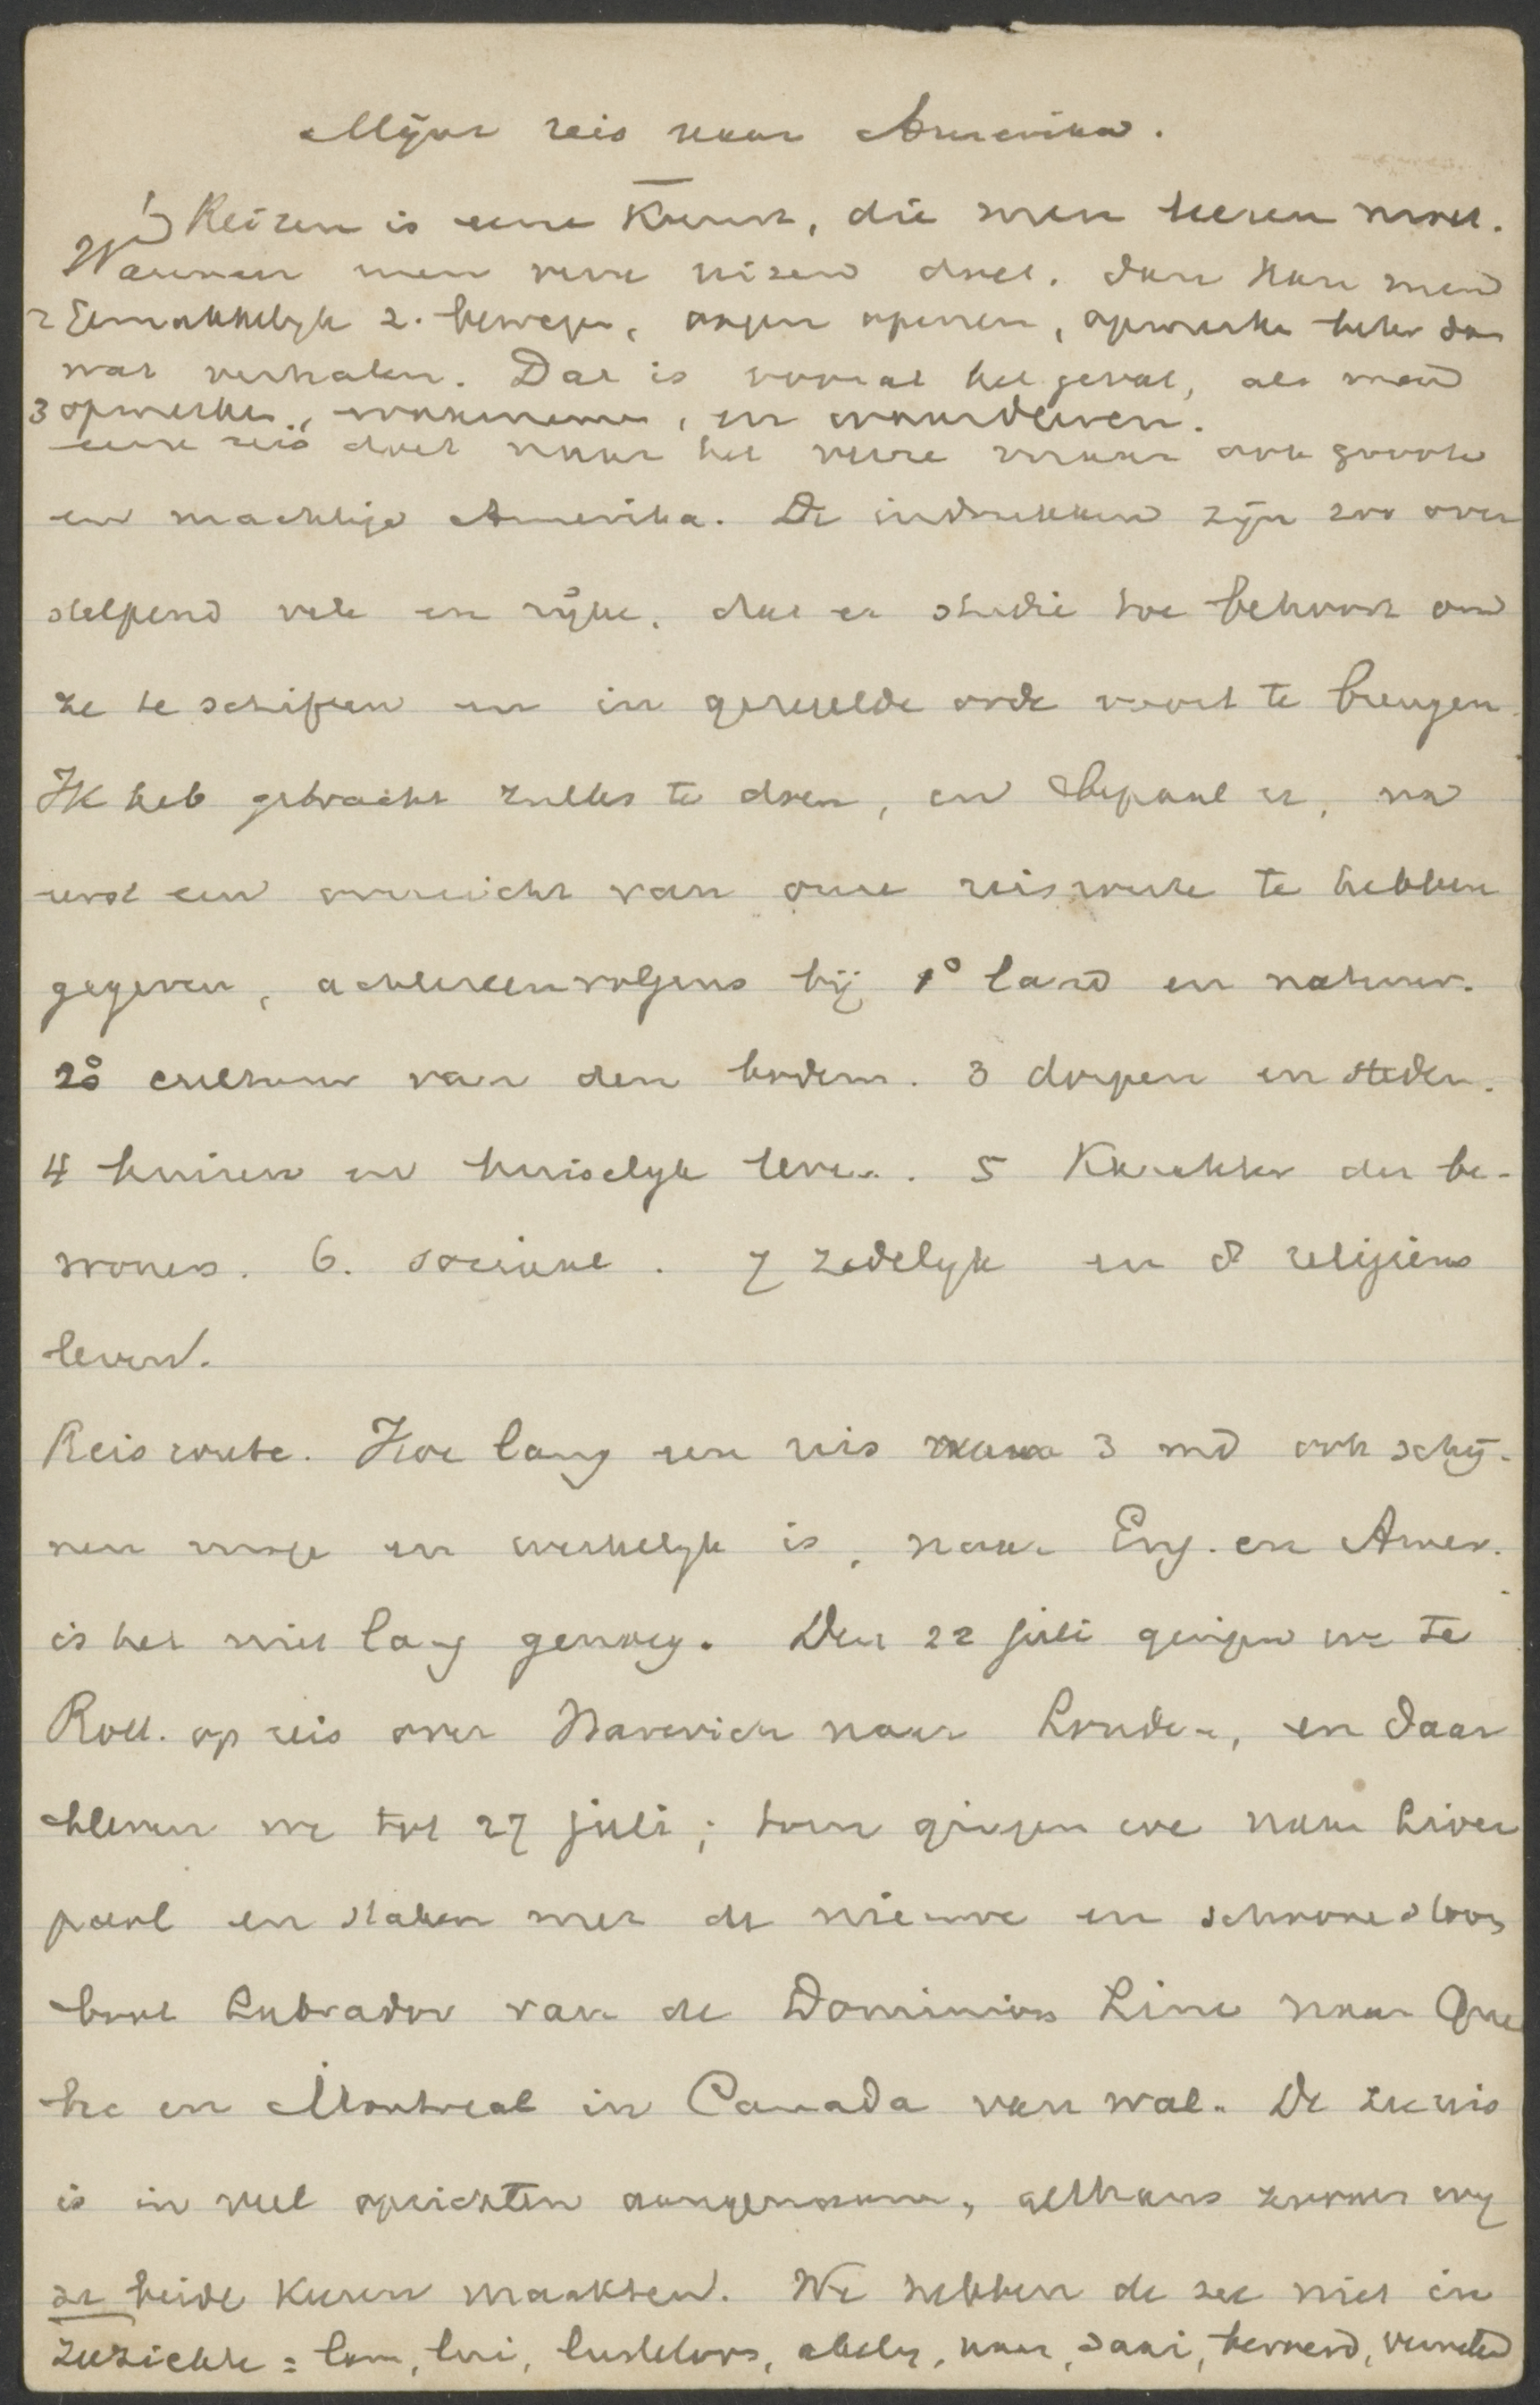 Mijne reis naar Amerika.
1) Reizen is eene Kunst, die men leeren moet.
Wanneer men verre reizen doet. dan kan men
2 Gemakkelijk 2. bewegen, oogen openen, opmerken beter dan
wat verhalen. Dat is vooral het geval, als men
3 opmerken, waarnemen, en waardeeren.
eene reis doet naar het verre maar ook groote
en machtige Amerika. De indrukken zijn zoo over
stelpend vele en rijke, dat er studie toe behoort om
ze te schiften en in geregelde orde voort te brengen.
Ik heb getracht zulks te doen, en bepaal er, na
eerst een overzicht van onze reisroute te hebben
gegeven, achtereenvolgens bij 1° land en natuur.
2° cultuur van den bodem. 3 dorpen en steden.
4 huizen en huiselijk leven. 5 Karakter der be-
woners. 6. sociaal. 7 zedelijk en 8 religieus
leven.
Reisroute. Hoe lang een reis 3 md ook schij-
nen moge en werkelijk is, naar Eng. en Amer.
is het niet lang genoeg. Den 22 juli gingen we te
Rott. op reis over Harwich naar Londen, en daar
bleven we tot 27 juli; toen gingen we naar Liver
pool en staken met de nieuwe en schoone stoom
boot Labrador van de Dominion Line naar Que
bec en Montreal in Canada van wal. De zeereis
is in veel opzichten aangenaam, althans zooals wij
ze beide keeren maakten. We hebben de zee niet in
zeeziekte = lam, lui, lusteloos, akelig, naar, saai, beroerd,